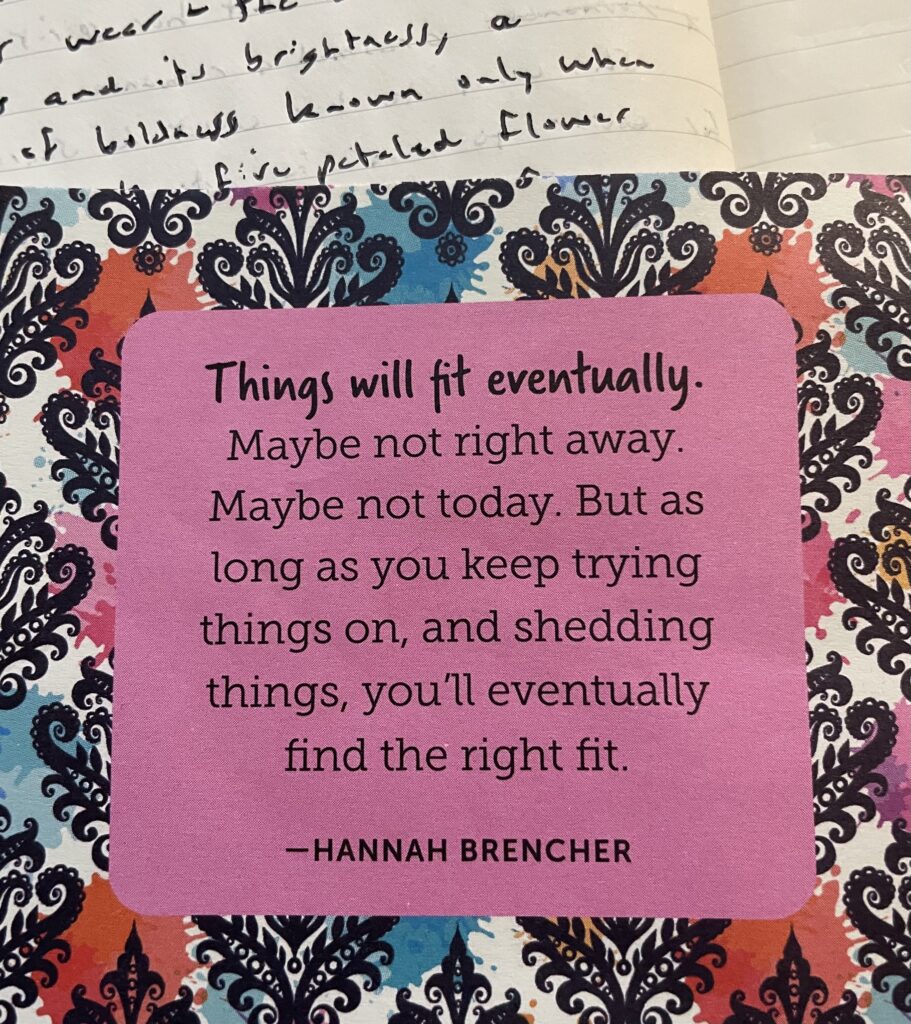 wear the
and its brightness, a
of boldness known only when
five petaled flower
Things will fit eventually.
Maybe not right away.
Maybe not today. But as
long as you keep trying
things on, and shedding
things, you'll eventually
find the right fit.
—HANNAH BRENCHER